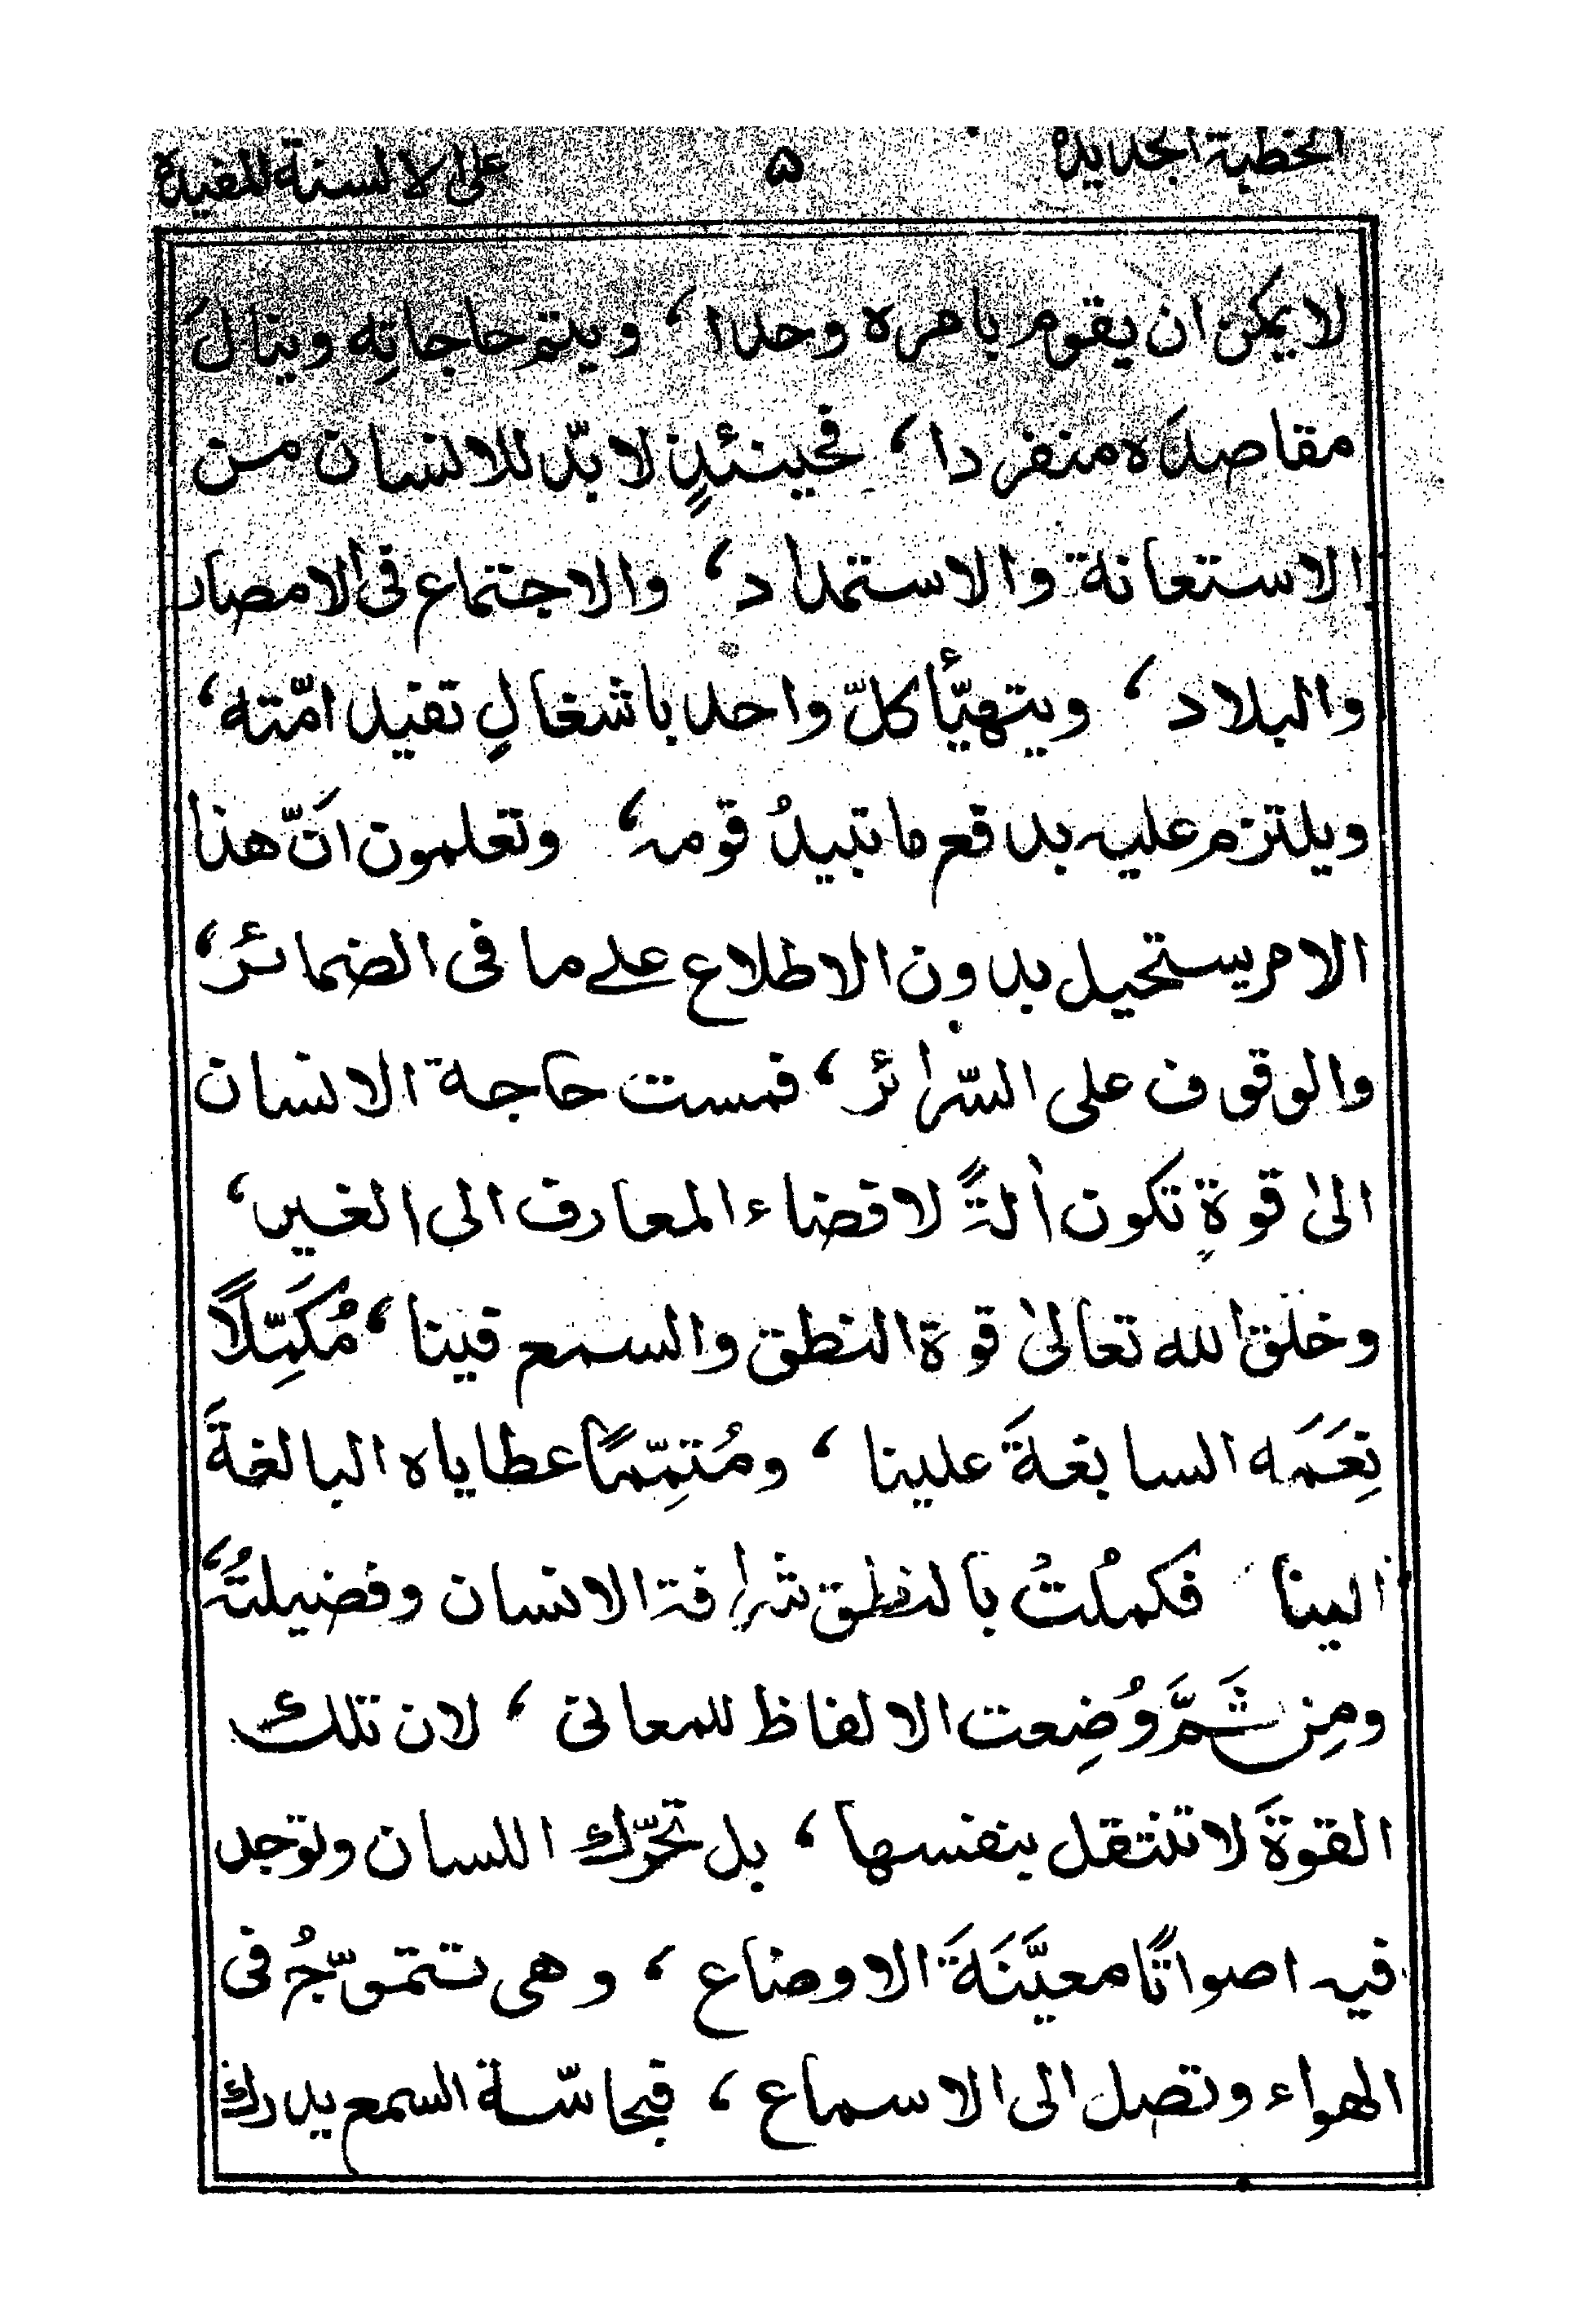 الخطبة الجديدة ۵ على الالسنة المفيدة
لا يمكن ان يقوم بامره وحدا، ويتم حاجاتِه وينالَ
مقاصدَه منفردا، فحينئذٍ لا بدّ للانسان من
الاستعانة والاستمداد، والاجتماع فى الامصار
والبلاد، ويتهيّأ كلّ واحد باشغالٍ تفيد امّته،
ويلتزم عليه بدفع ما تبيدُ قومه، وتعلمون انّ هذا
الامر يستحيل بدون الاطلاع على ما فى الضمائر،
والوقوف على السّرائر، فمست حاجة الانسان
الىٰ قوةٍ تكون اٰلةً لافضاء المعارف الى الغير،
وخلق الله تعالىٰ قوة النطق والسمع فينا، مُكَمِّلًا
نِعَمَه السابغةَ علينا، ومُتمِّمًا عطاياه البالغةَ
الينا فكمُلتُ بالنطق شرافة الانسان وفضيلتُهُ،
ومِن ثَمَّ وُضِعت الالفاظ للمعانى، لان تلك
القوةَ لا تنتقل بنفسها، بل تحرّك اللسان وتوجد
فيه اصواتًا معيَّنَةَ الاوضاع، وهى تتموّجُ فى
الهواء وتصل الى الاسماع، فبحاسّة السمع يدرك